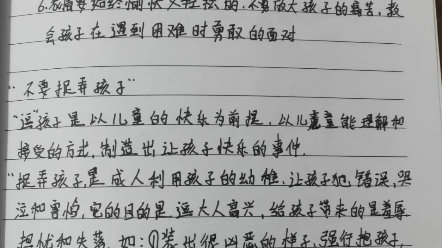 6.衣情要始终愉快又轻松的，不要放大孩子的痛苦，教
会孩子在遇到困难时勇敢的面对
"不要捉弄孩子"
"逗"孩子是以儿童的快乐为前提，以儿童能理解和
接受的方式，制造出让孩子快乐的事件.
"捉弄孩子是成人利用孩子的幼稚，让孩子犯错误，哭
泣和害怕，它的目的是逗大人高兴，给孩子带来的是羞辱
担忧和失落，如：①装出很凶恶的样子，强行抱孩子，